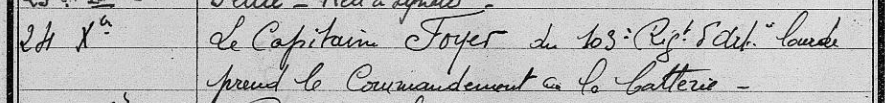 24 Xª Le Capitaine Foyer du 103e Rigt d'art. lourde
prend le Commandement de la batterie -